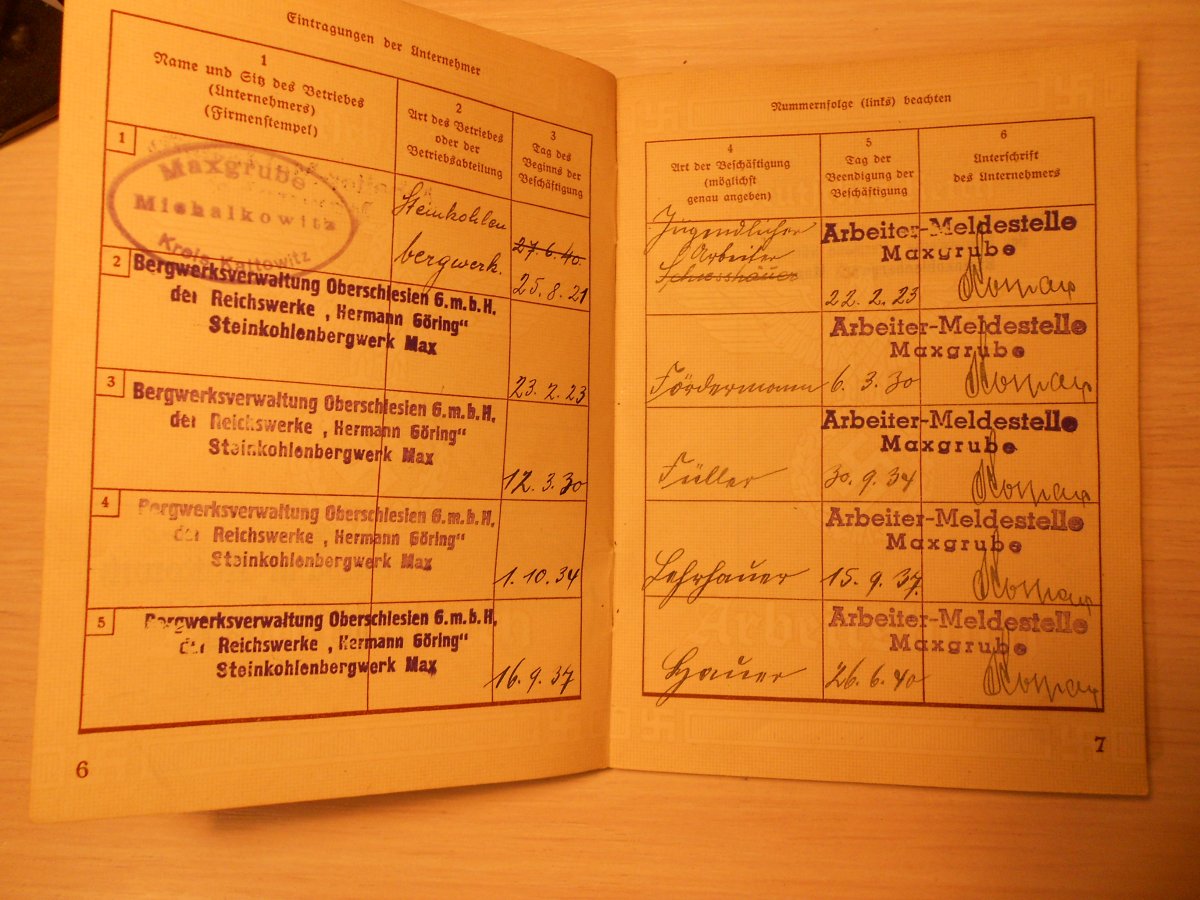 Eintragungen der Unternehmer
1
Name und Sitz des Betriebes
(Unternehmers)
(Firmenstempel)
2
Art des Betriebes
oder der
Betriebsabteilung
3
Tag des
Beginns der
Beschäftigung
1
Maxgrube
Michalkowitz
Kreis Kattowitz
Steinkohlen
bergwerk.
27.6.40
25.8.21
2
Bergwerksverwaltung Oberschlesien G.m.b.H.
der Reichswerke „Hermann Göring“
Steinkohlenbergwerk Max
23.2.23
3
Bergwerksverwaltung Oberschlesien G.m.b.H.
der Reichswerke „Hermann Göring“
Steinkohlenbergwerk Max
12.3.30
4
Bergwerksverwaltung Oberschlesien G.m.b.H.
der Reichswerke „Hermann Göring“
Steinkohlenbergwerk Max
1.10.34
5
Bergwerksverwaltung Oberschlesien G.m.b.H.
der Reichswerke „Hermann Göring“
Steinkohlenbergwerk Max
16.9.37
6
Nummernfolge (links) beachten
4
Art der Beschäftigung
(möglichst
genau angeben)
5
Tag der
Beendigung der
Beschäftigung
6
Unterschrift
des Unternehmers
Jugendlicher
Arbeiter
Arbeiter-Meldestelle
Maxgrube
22.2.23
Arbeiter-Meldestelle
Maxgrube
Fördermann
6.3.30
Arbeiter-Meldestelle
Maxgrube
Füller
30.9.34
Arbeiter-Meldestelle
Maxgrube
Lehrhauer
15.9.37
Arbeiter-Meldestelle
Maxgrube
Hauer
26.6.40
7